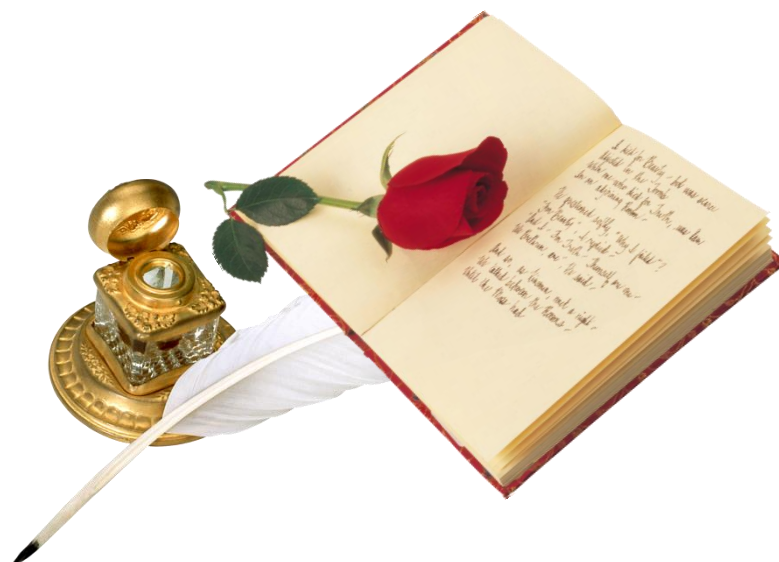 I died for Beauty - but was scarce
Adjusted in the Tomb
When One who died for Truth, was lain
In an adjoining Room -
He questioned softly "Why I failed"?
"For Beauty", I replied -
"And I - for Truth - Themself are One -
We Brethren, are", He said -
And so, as Kinsmen, met a Night -
We talked between the Rooms -
had